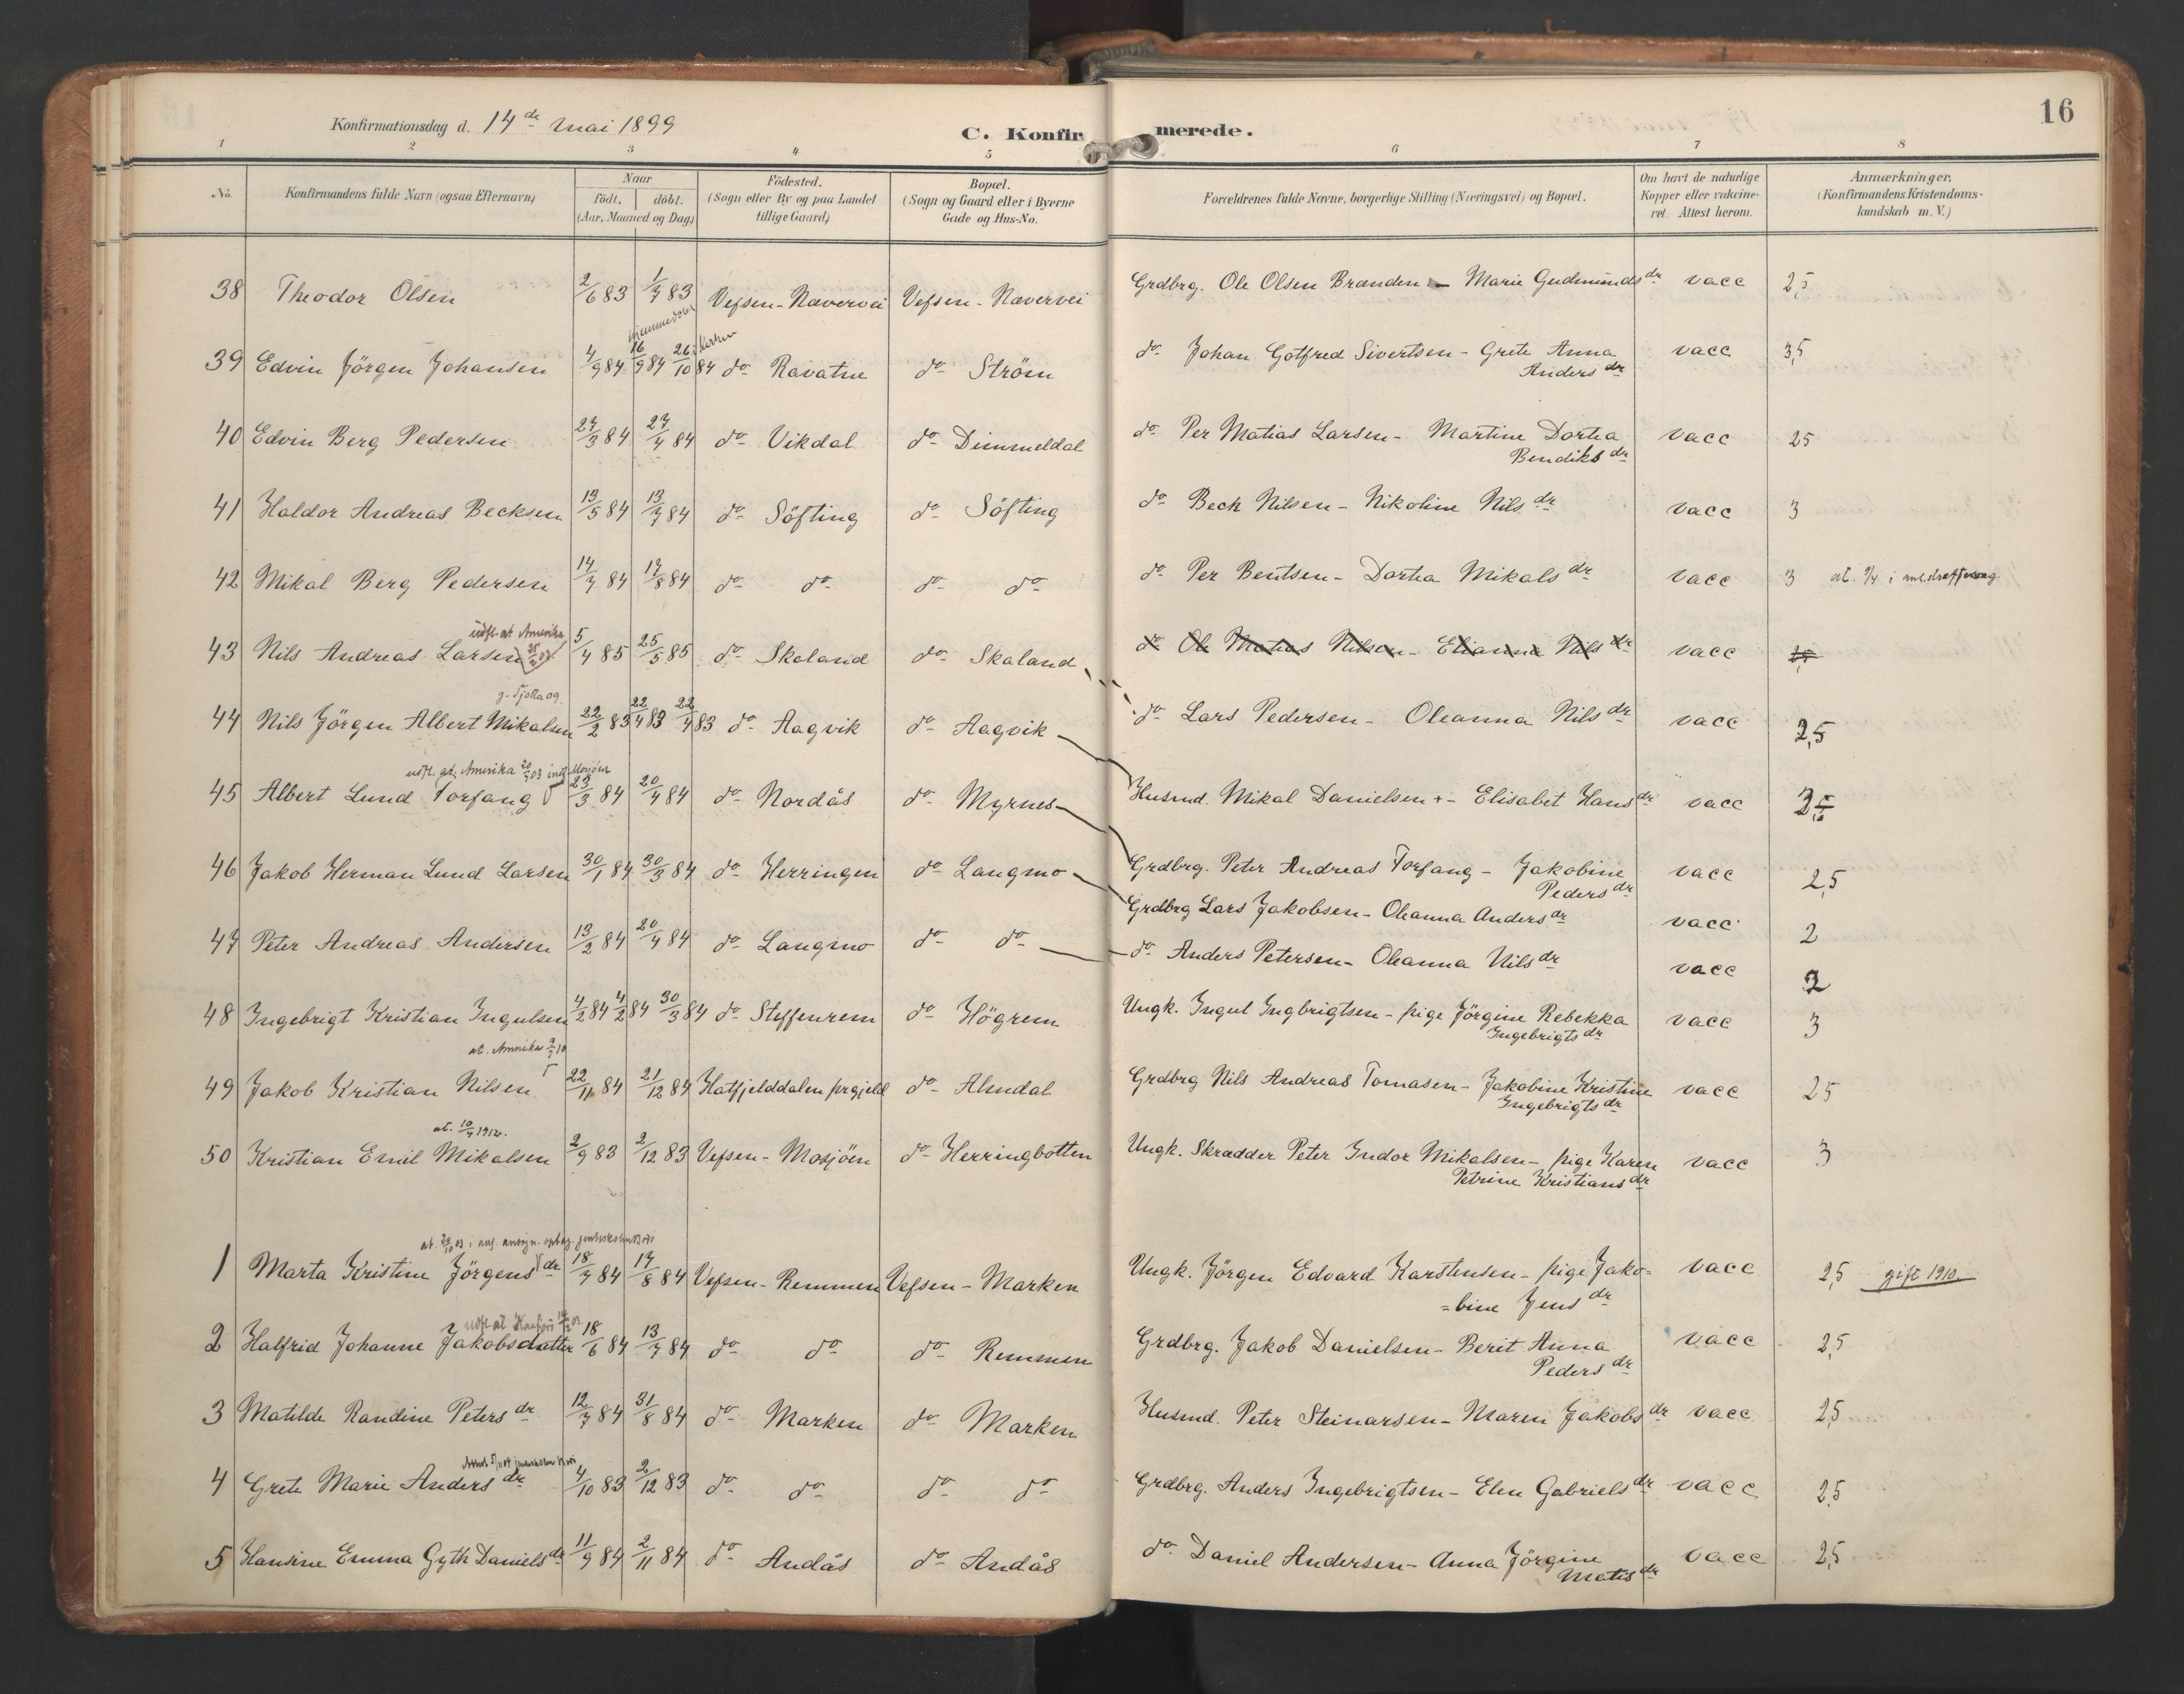 16
Konfirmationsdag d. 14de Mai 1899
C. Konfirmerede.
1 2 3 4 5 6 7 8
No. Konfirmandens fulde Navn (ogsaa Efternavn) Naar født. døbt. (Aar, Maaned og Dag) Fødested. (Sogn eller By og paa Landet tillige Gaard) Bopæl. (Sogn og Gaard eller i Byerne Gade og Hus-No. Forældrenes fulde Navne, borgerlige Stilling (Næringsvei) og Bopæl. Om havt de naturlige Kopper eller vakcineret. Attest herom. Anmærkninger, (Konfirmandens Kristendomskundskab m. V.)
38 Theodor Olsen 2/6 83 1/7 83 Vefsen - Navervei Vefsen - Navervei Grdbrg. Ole Olsen Branden - Marie Gudmundsdr vacc 2,5
hjemmedøbt kirken
39 Edvin Jörgen Johansen 4/9 84 16/9 84 26/10 84 do Ravatne do Ström do Johan Gotfred Sivertsen - Grete Anna Andersdr vacc 3,5
40 Edvin Berg Pedersen 27/3 84 27/4 84 do Vikdal do Dimmeldal do Per Matias Larsen - Martine Dortea Bendiksdr vacc 25
41 Haldor Andreas Becksen 13/5 84 13/7 84 do Söfting do Söfting do Beck Nilsen - Nikoline Nilsdr vacc 3
42 Mikal Berg Pedersen 14/7 84 17/8 84 do do do do do Per Bentsen - Dortea Mikalsdr vacc 3
udfl. at Amerika
43 Nils Andreas Larsen 5/4 85 25/5 85 do Skaland do Skaland do Ole Matias Nilsen - Elianna Nilsdr vacc 2,5
44 Nils Jörgen Albert Mikalsen 22/2 83 22/4 83 22/4 83 do Aagvik do Aagvik do Lars Pedersen - Oleanna Nilsdr vacc 2,5
udfl. at. Amerika 20/7 03
45 Albert Lund Torfang 23/3 84 20/4 84 do Nordås do Myrnes Husmd. Mikal Danielsen + - Elisabet Hansdr vacc 2,5
46 Jakob Herman Lund Larsen 30/1 84 30/3 84 do Herringen do Langmo Grdbrg. Peter Andreas Torfang - Jakobine Pedersdr vacc 2,5
Grdbrg Lars Jakobsen - Oleanna Andersdr vacc 2
47 Peter Andreas Andersen 13/2 84 20/4 84 do Langmo do do do Anders Petersen - Oleanna Nilsdr vacc 2
48 Ingebrigt Kristian Ingulsen 4/2 84 4/2 84 30/3 84 do Steffenrem do Högrem Ungk. Ingul Ingbrigtsen - pige Jörgine Rebekka Ingebrigtsdr vacc 3
at. Amerika
49 Jakob Kristian Nilsen 22/11 84 21/12 84 Hatfjelddalen prgjeld do Almdal Grdbrg Nils Andreas Tomasen - Jakobine Kristine Ingebrigtsdr vacc 25
at. 10/4 1912.
50 Kristian Emil Mikalsen 2/9 83 2/12 83 Vefsen - Mosjöen do Herringbotten Ungk. Skrædder Peter Indor Mikalsen - pige Karen Petrine Kristiansdr vacc 3
1 Marta Kristine Jörgensdr 18/7 84 17/8 84 Vefsen - Remmen Vefsen - Marken Ungk. Jörgen Edvard Karstensen - pige Jako-
=bine Jensdr vacc 2,5 gift 1910
2 Halfrid Johanne Jakobsdatter 18/6 84 13/7 84 do do do Remmen Grdbrg. Jakob Danielsen - Berit Anna Pedersdr vacc 2,5
3 Matilde Randine Petersdr 12/7 84 31/8 84 do Marken do Marken Husmd. Peter Steinarsen - Maren Jakobsdr vacc 2,5
4 Grete Marie Andersdr 4/10 83 2/12 83 do do do do Grdbrg. Anders Ingebrigtsen - Elen Gabrielsdr vacc 2,5
5 Hansine Emma Gyth Danielsdr 11/9 84 2/11 84 do Andås do Andås do Daniel Andersen - Anna Jörgine Matisdr vacc 2,5